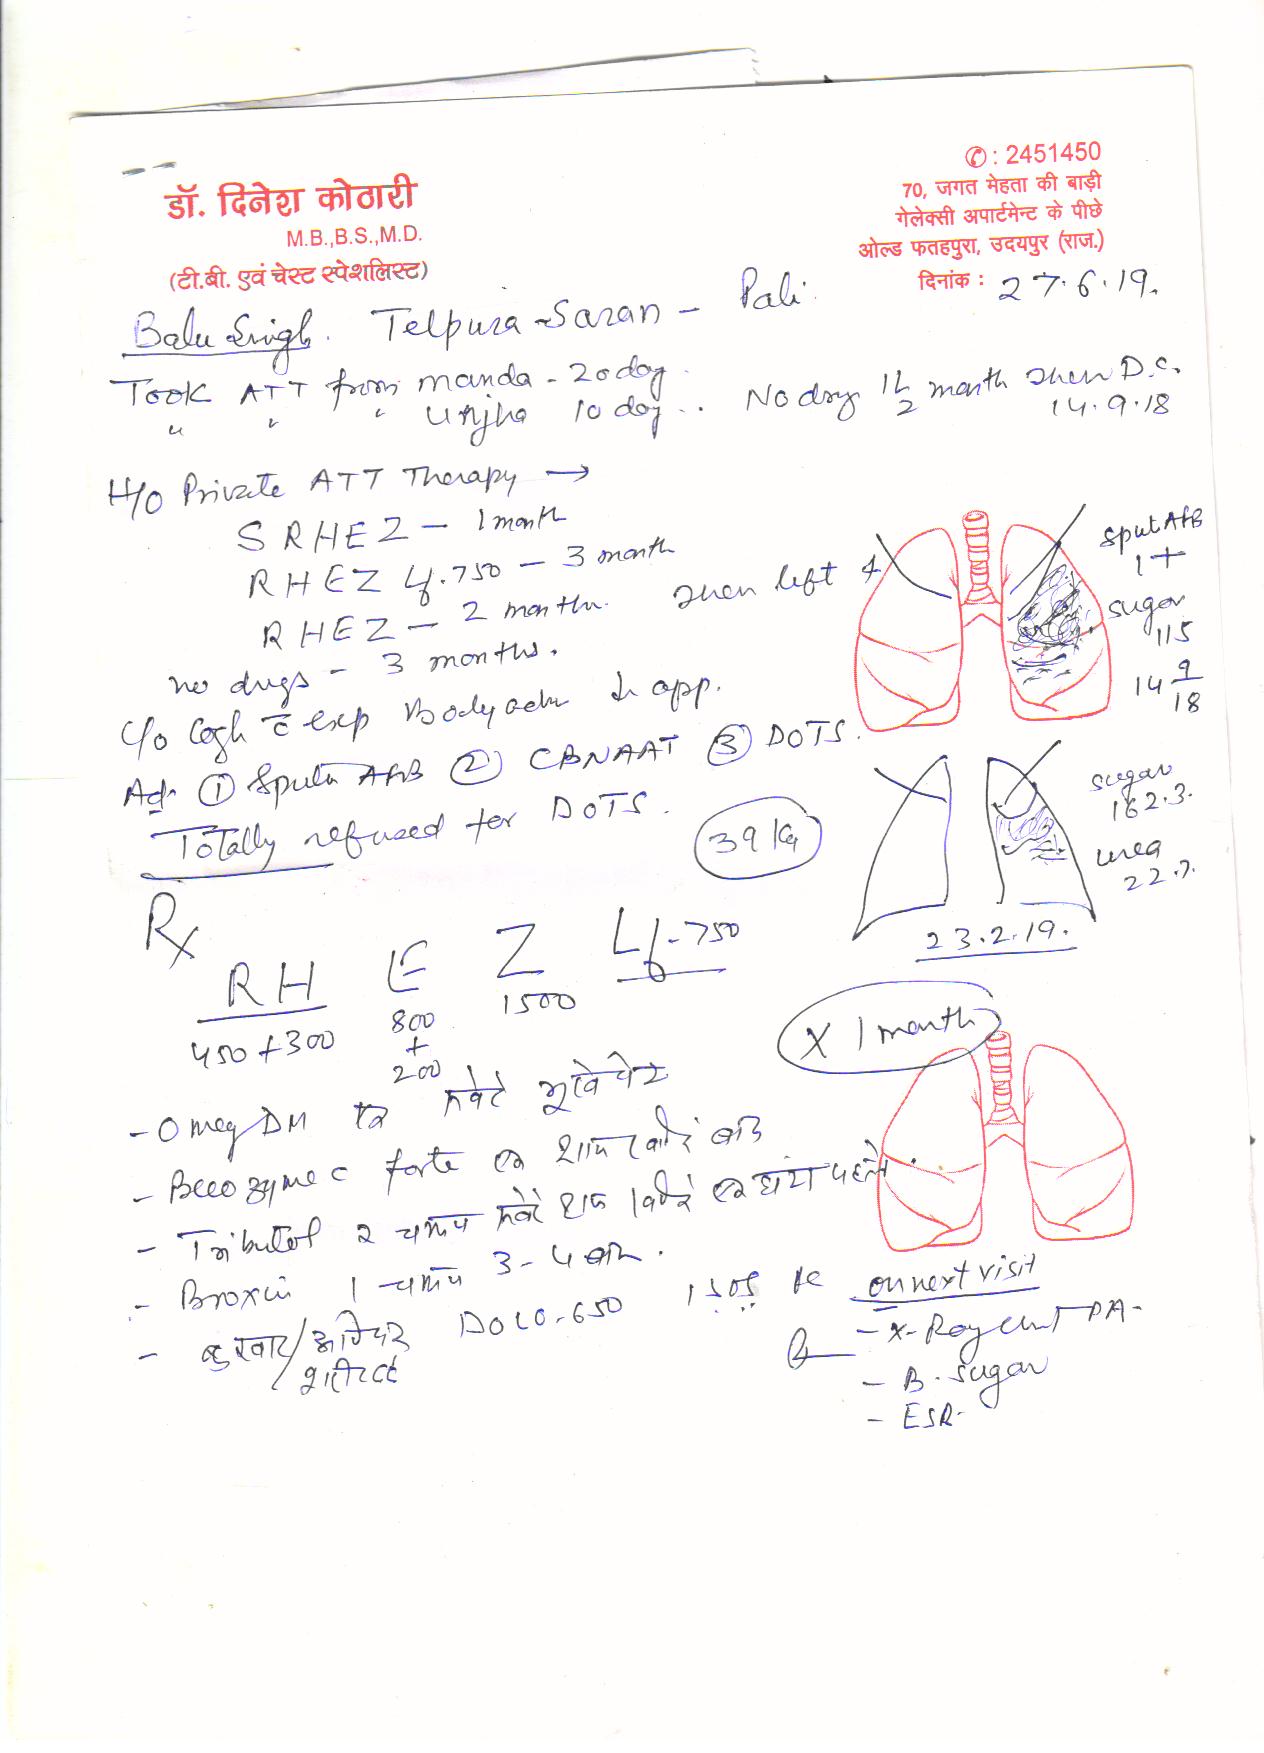 डॉ. दिनेश कोठारी
M.B.,B.S.,M.D.
(टी.बी. एवं चेस्ट स्पेशलिस्ट)
✆ : 2451450
70, जगत मेहता की बाड़ी
गेलेक्सी अपार्टमेन्ट के पीछे
ओल्ड फतहपुरा, उदयपुर (राज.)
दिनांक : 27.6.19.
Balu Singh. Telpura Saran - Pali
Took ATT from manda - 20 day.
" " " Unjha 10 day.. No drug 1½ month then D.C.
14.9.18
H/O Private ATT Therapy →
SRHEZ - 1 month
RHEZ Lf.750 - 3 month
RHEZ - 2 months. then left
no drugs - 3 months.
Sput AFB
1+
sugar
115
14 9/18
C/o Cogh c̄ exp Bodyache ↓ app.
Ad. ① Sputa AFB ② CBNAAT ③ DOTS.
Totally refused for DOTS.
39 Kg
sugar
162.3.
urea
22.7.
23.2.19.
Rx
RH E Z Lf-750
450+300 800 1500
+
200
X 1 month
- Omeg DM एक सवेरे भूखे पेट
- Becozyme C forte एक शाम खाने बाद
- Tributol २ चम्मच सवेरे शाम खाने एक घंटा पहले.
- Broxin 1 चम्मच 3-4 बार.
- बुखार/ DOLO-650 1 SOS
on next visit
- X-Ray chest PA-
- B. sugar
- ESR-